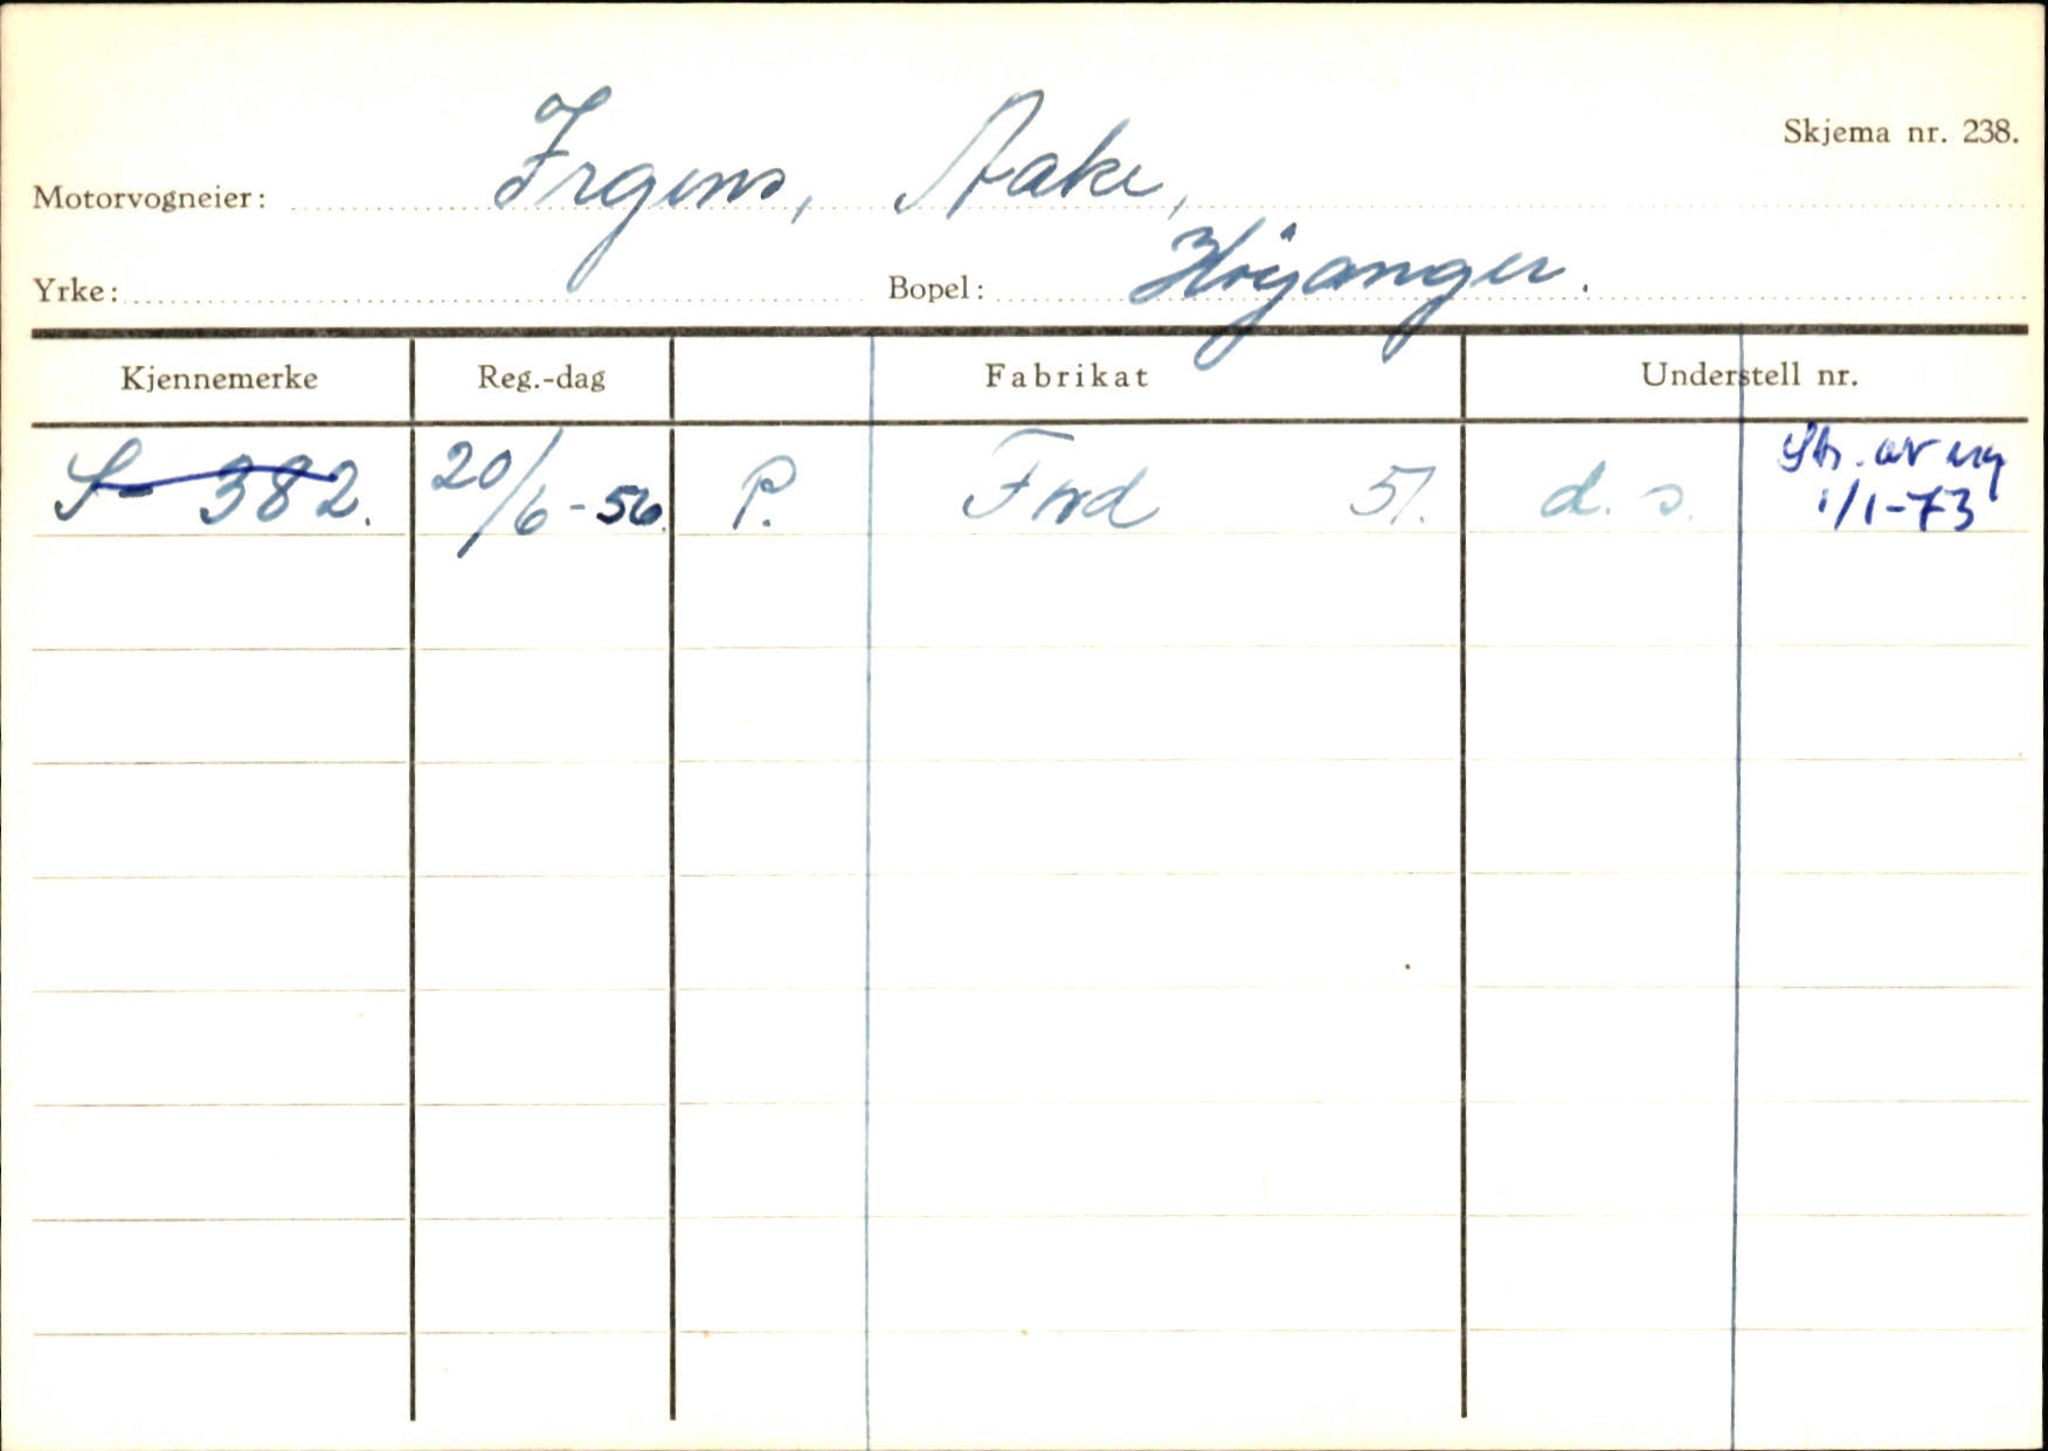 Skjema nr. 238.
Motorvogneier: Irgens, Aake,
Yrke: Bopel: Höyanger.
Kjennemerke Reg.-dag Fabrikat Understell nr.
S- 382. 20/6-56. P. Ford 51. d. s. Str. av reg
1/1-73